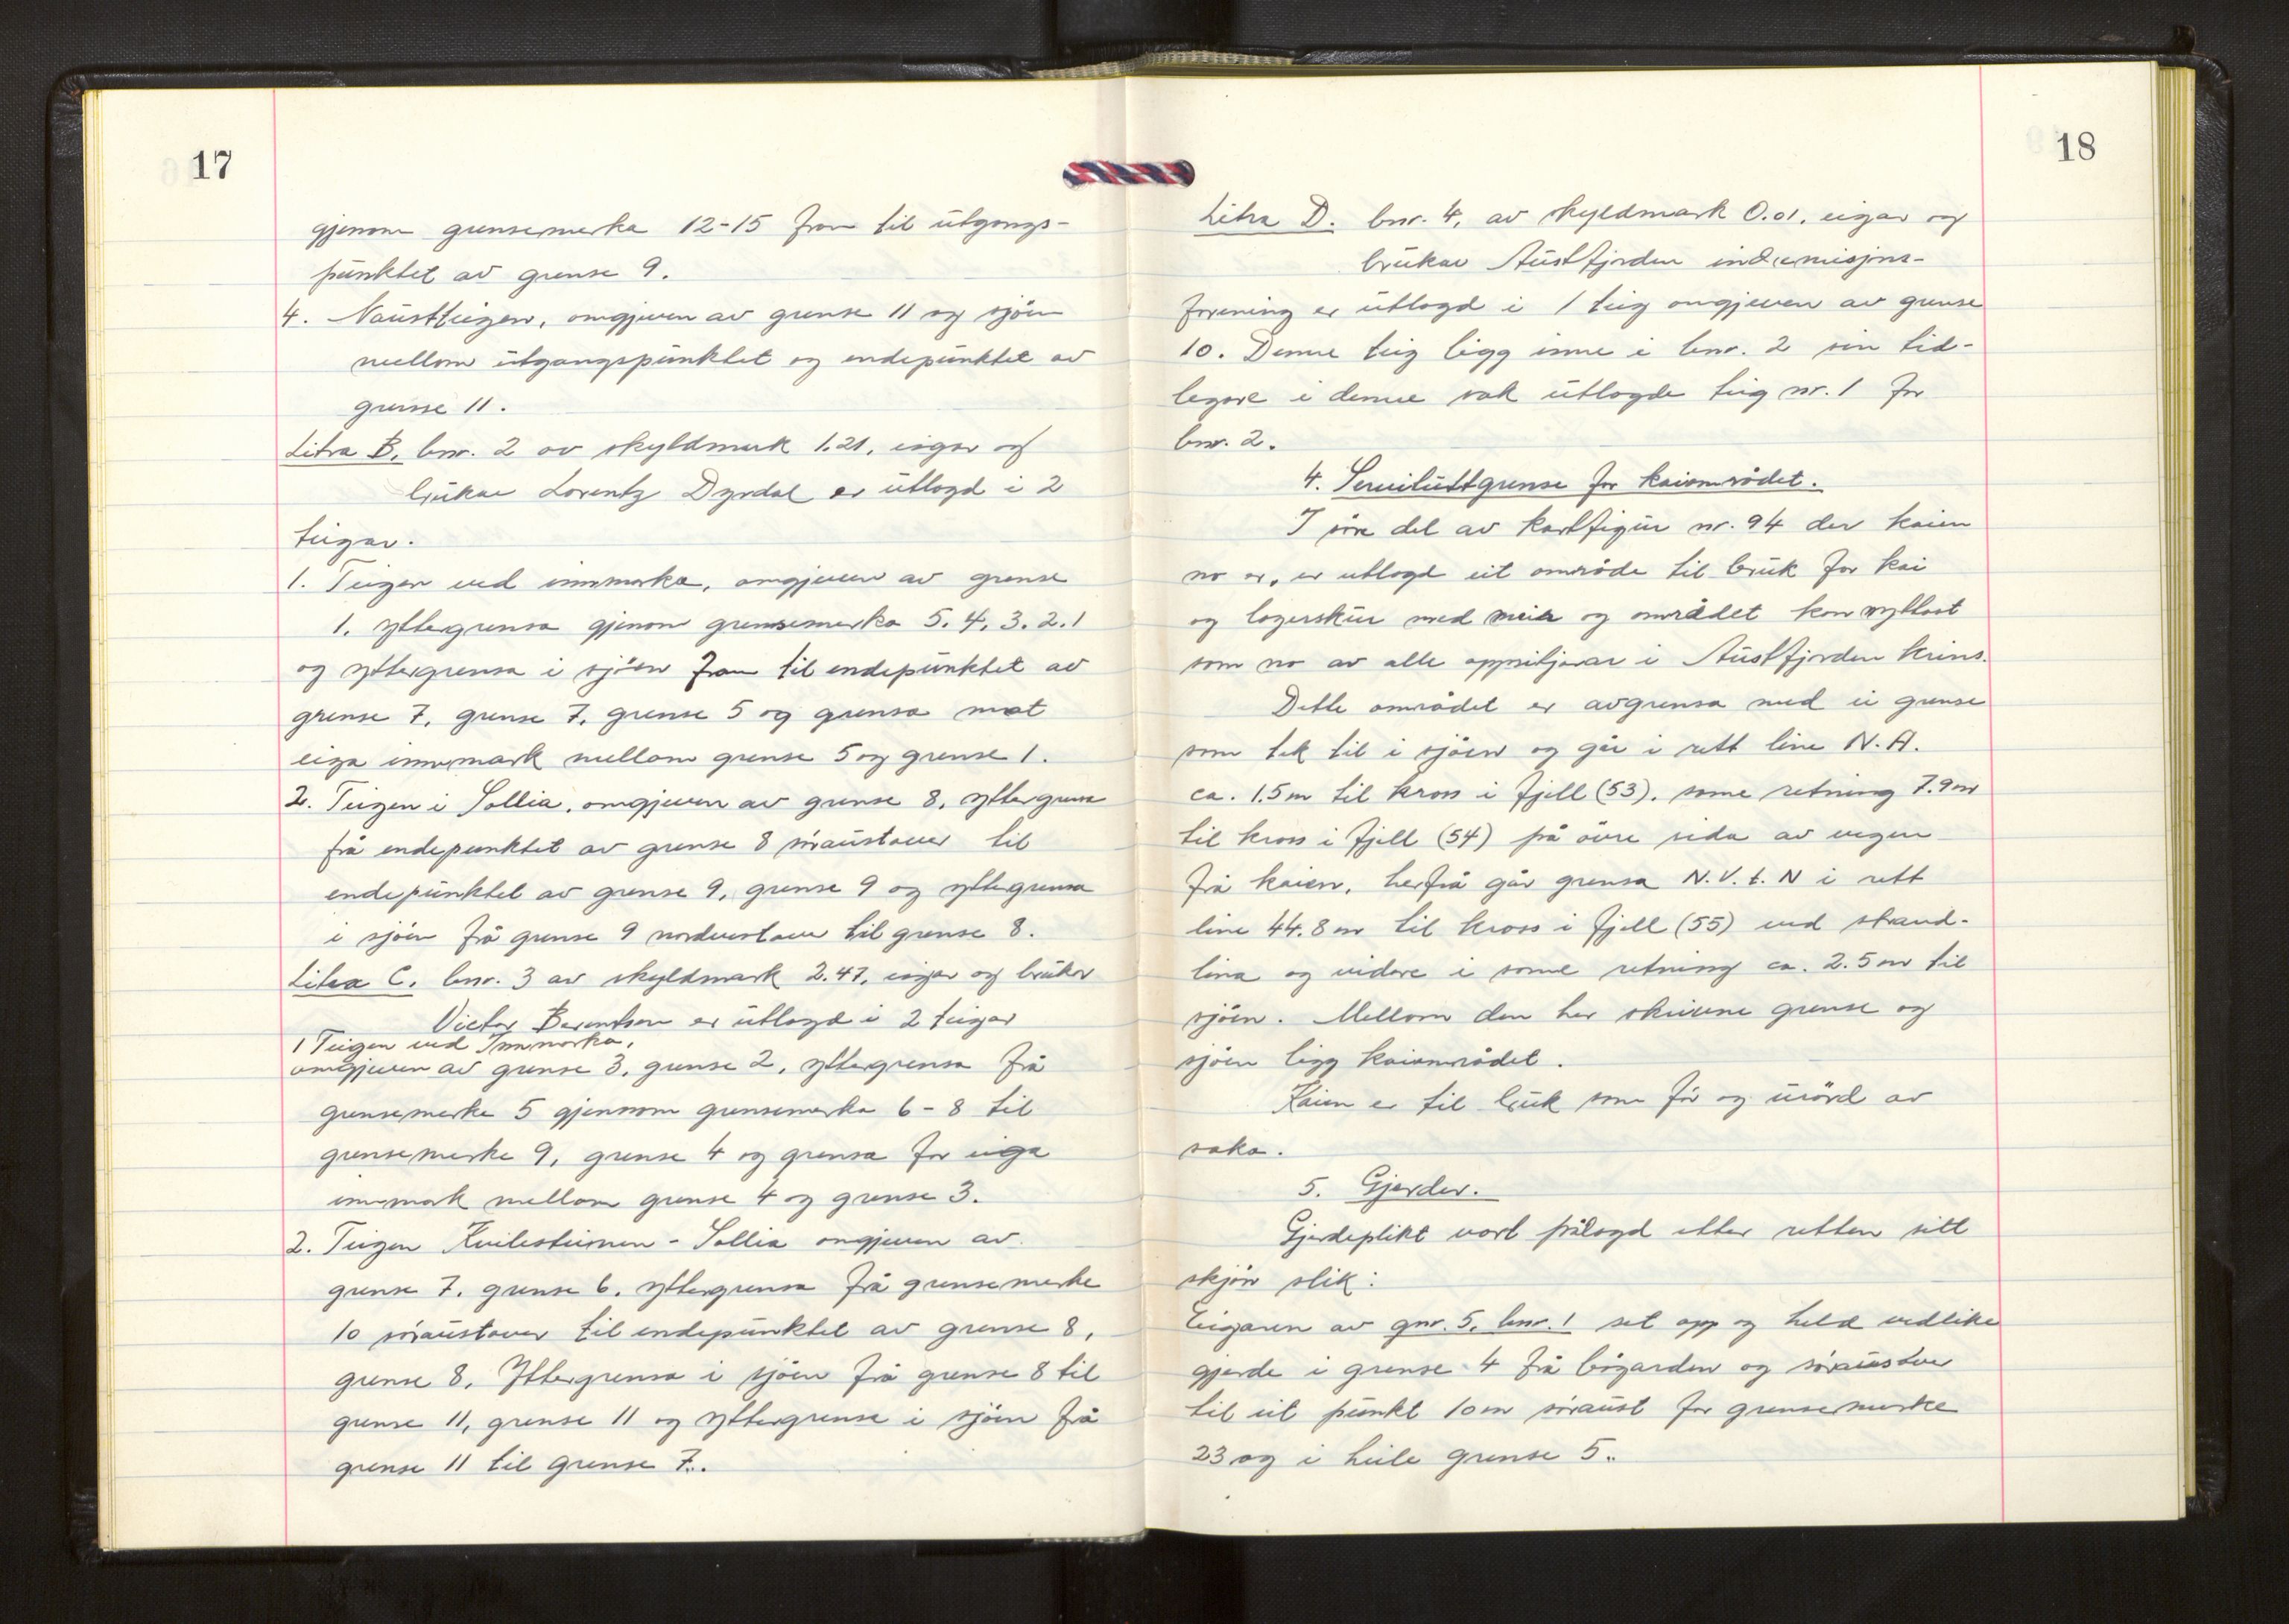 17
gjenom grensemerka 12-15 fram til utgangs-
punktet av grense 9.
4. Naustteigen, omgjeven av grense 11 og sjöen
mellom utgangspunktet og endepunktet av
grense 11.
Litra B. bnr. 2 av skyldmark 1.21, eigar og
brukar Lorentz Dyrdal er utlagd i 2
teigar.
1. Teigen ved innmarka, omgjeven av grense
1. yttergrensa gjenom grensemerka 5. 4. 3. 2. 1
og yttergrensa i sjöen fram til endepunktet av
grense 7, grense 7, grense 5 og grensa mot
eiga innmark mellom grense 5 og grense 1.
2. Teigen i Sollia, omgjeven av grense 8, yttergrensa
frå endepunktet av grense 8 söraustover til
endepunktet av grense 9, grense 9 og yttergrensa
i sjöen frå grense 9 nordvestover til grense 8.
Litra C. bnr. 3 av skyldmark 2.47, eigar og brukar
Victor Berentsen er utlagd i 2 teigar
1 Teigen ved Innmarka,
omgjeven av grense 3, grense 2, yttergrensa frå
grensemerke 5 gjennom grensemerka 6-8 til
grensemerke 9, grense 4 og grensa for eiga
innmark mellom grense 4 og grense 3.
2. Teigen Kvilesteinen - Sollia omgjeven av
grense 7. grense 6. yttergrensa frå grensemerke
10 söraustover til endepunktet av grense 8,
grense 8. Yttergrensa i sjöen frå grense 8 til
grense 11, grense 11 og yttergrense i sjöen frå
grense 11 til grense 7.
18
Litra D. bnr. 4, av skyldmark 0.01, eigar og
brukar Austfjorden indremisjons-
forening er utlagd i 1 teig omgjeven av grense
10. Denne teig ligg inne i bnr. 2 sin tid-
legare i denne sak utlagde teig nr. 1 for
bnr. 2.
4. Servituttgrense for kaiområdet.
I söre del av kartfigur nr. 94 der kaien
no er, er utlagd eit område til bruk for kai
og lagerskur med meir og området kan nyttast
som no av alle oppsitjarar i Austfjorden krins.
Dette området er avgrensa med ei grense
som tek til i sjöen og går i rett line N.A.
ca. 1.5 m til kross i fjell (53), same retning 7.9 m
til kross i fjell (54) på övre sida av vegen
frå kaien, herfrå går grensa N.V.t.N i rett
line 44.8 m til kross i fjell (55) ved strand-
lina og vidare i same retning ca. 2.5 m til
sjöen. Mellom den her skrivne grense og
sjöen ligg kaiområdet.
Kaien er til bruk som för og urörd av
saka.
5. Gjerder.
Gjerdeplikt vart pålagd etter retten sitt
skjön slik:
Eigaren av gnr. 5, bnr. 1 set opp og held vedlike
gjerde i grense 4 frå bögarden og söraustover
til eit punkt 10 m söraust for grensemerke
23 og i heile grense 5.